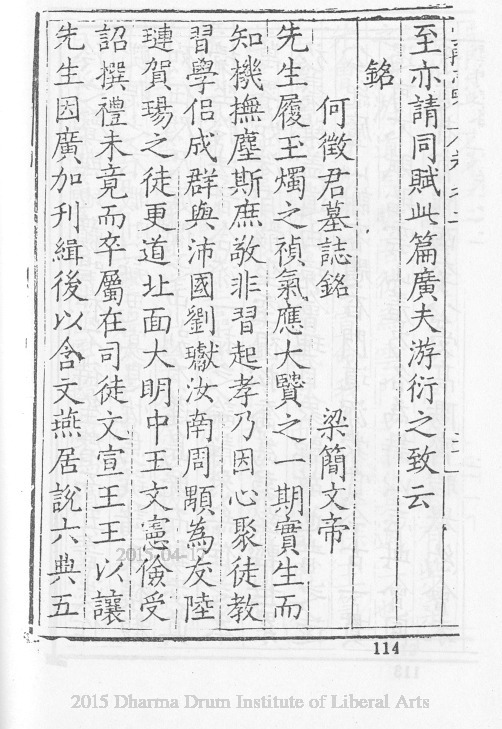 至亦請同賦此篇廣夫游衍之致云
銘
何徵君墓誌銘 梁簡文帝
先生履玉燭之禎氣應大賢之一期實生而
知機撫塵斯庶敬非習起孝乃因心聚徒教
習學侶成群與沛國劉瓛汝南周顒為友陸
璉賀瑒之徒更道北面大明中王文憲儉受
詔撰禮未竟而卒屬在司徒文宣王王以讓
先生因廣加刋緝後以含文燕居說六典五
114
2015-04-1
2015 Dharma Drum Institute of Liberal Arts